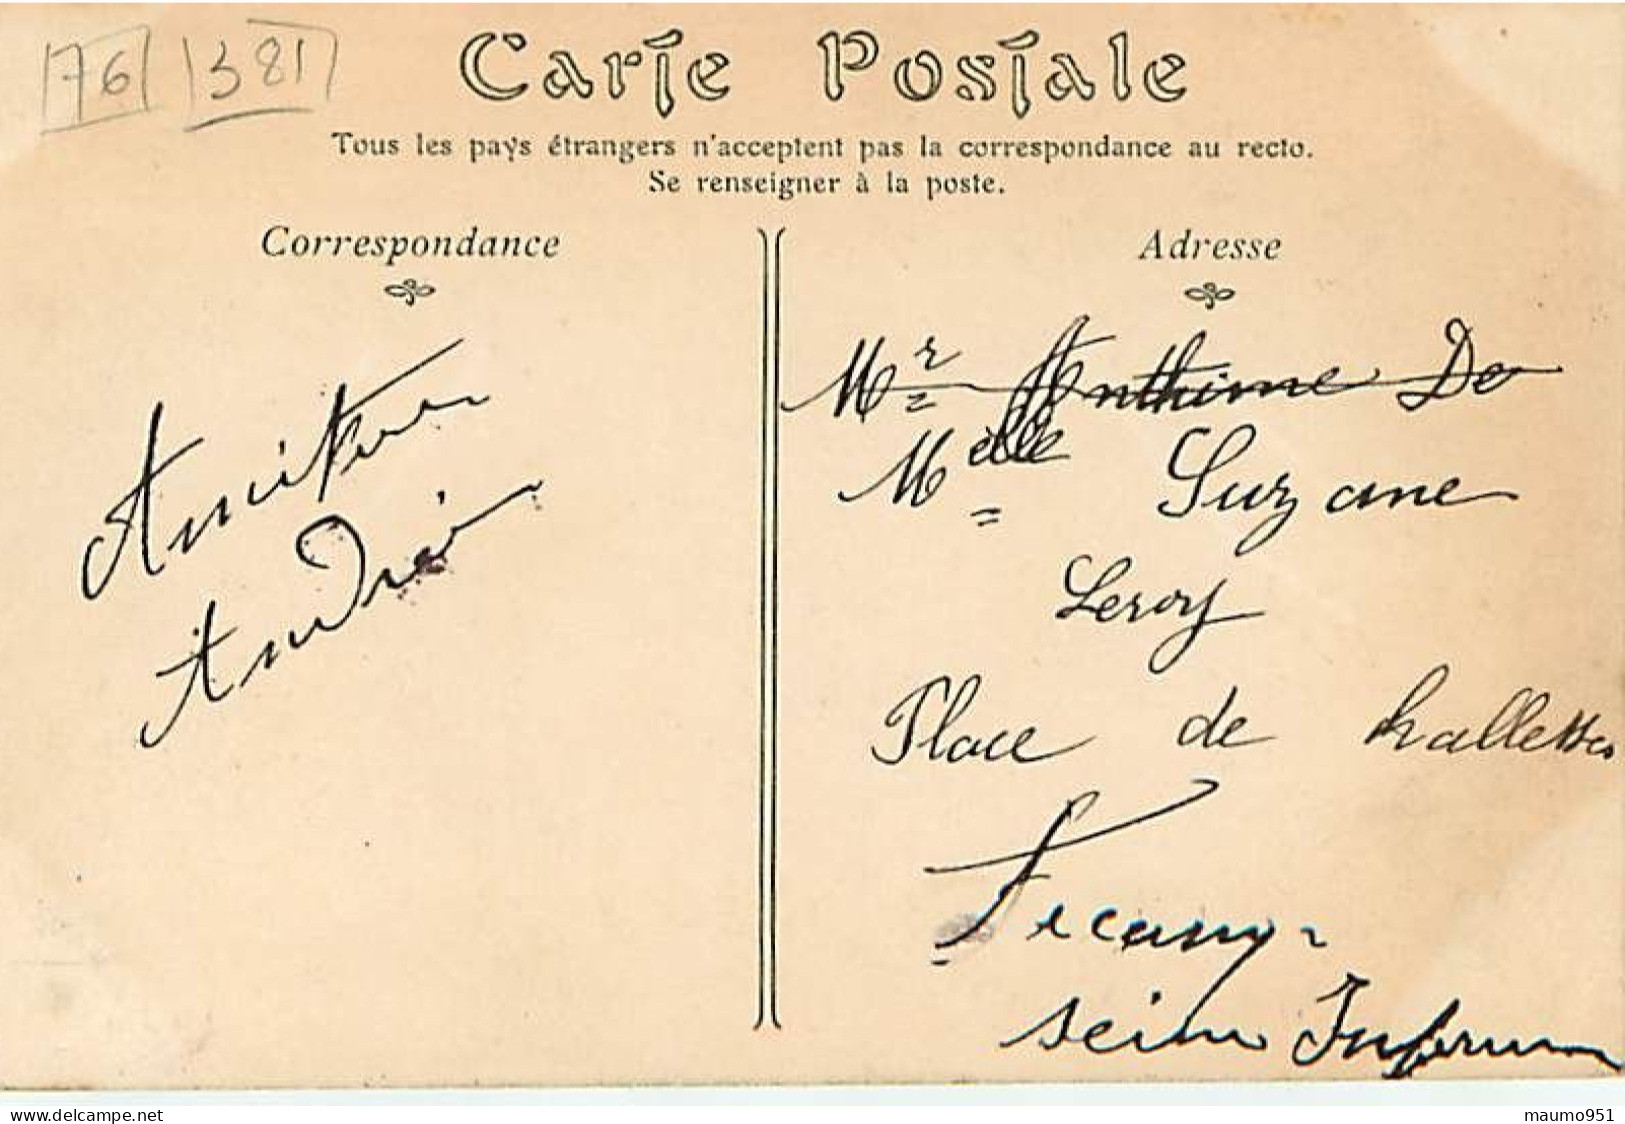 76 381
Carte Postale
Tous les pays étrangers n'acceptent pas la correspondance au recto.
Se renseigner à la poste.
Correspondance
Adresse
André
Mr Anthime De
Melle Suzane
Leroy
Place de hallettes
Fecamp
seine Inferieure
www.delcampe.net
maumo951